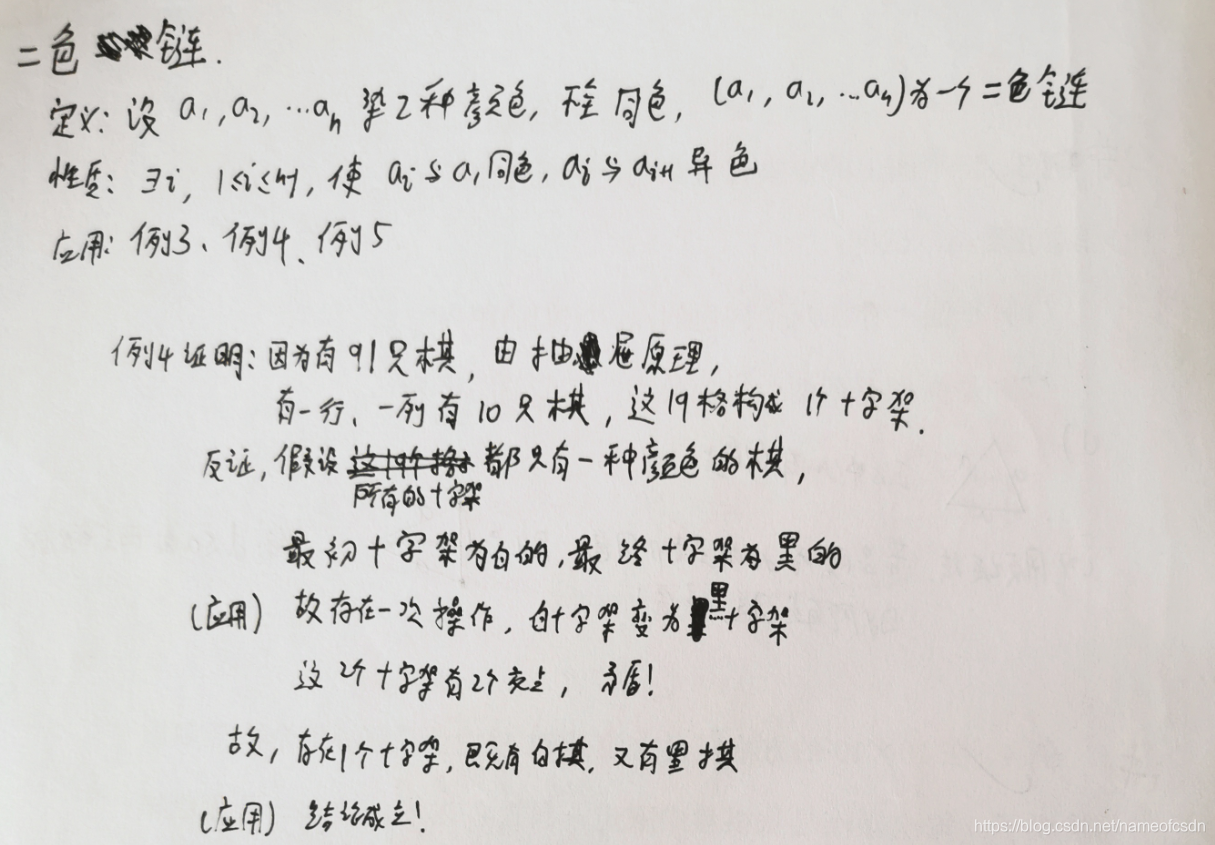 二色链.
定义: 设 a₁,a₂,…aₙ 染2种颜色, 不全同色, (a₁, a₂, …aₙ)为一个二色链
性质: ∃i, 1≤i≤n-1, 使 aᵢ与a₁同色, aᵢ与aᵢ₊₁异色
应用: 例3、例4、例5
例4证明: 因为有91只棋, 由抽屉原理,
有一行、一列有10只棋, 这19格构成1个十字架.
反证, 假设所有的十字架都只有一种颜色的棋,
最初十字架为白的, 最终十字架为黑的
(应用) 故存在一次操作, 白十字架变为黑十字架
这2个十字架有2个交点, 矛盾!
故, 存在1个十字架, 既有白棋, 又有黑棋
(应用) 结论成立!
https://blog.csdn.net/nameofcsdn